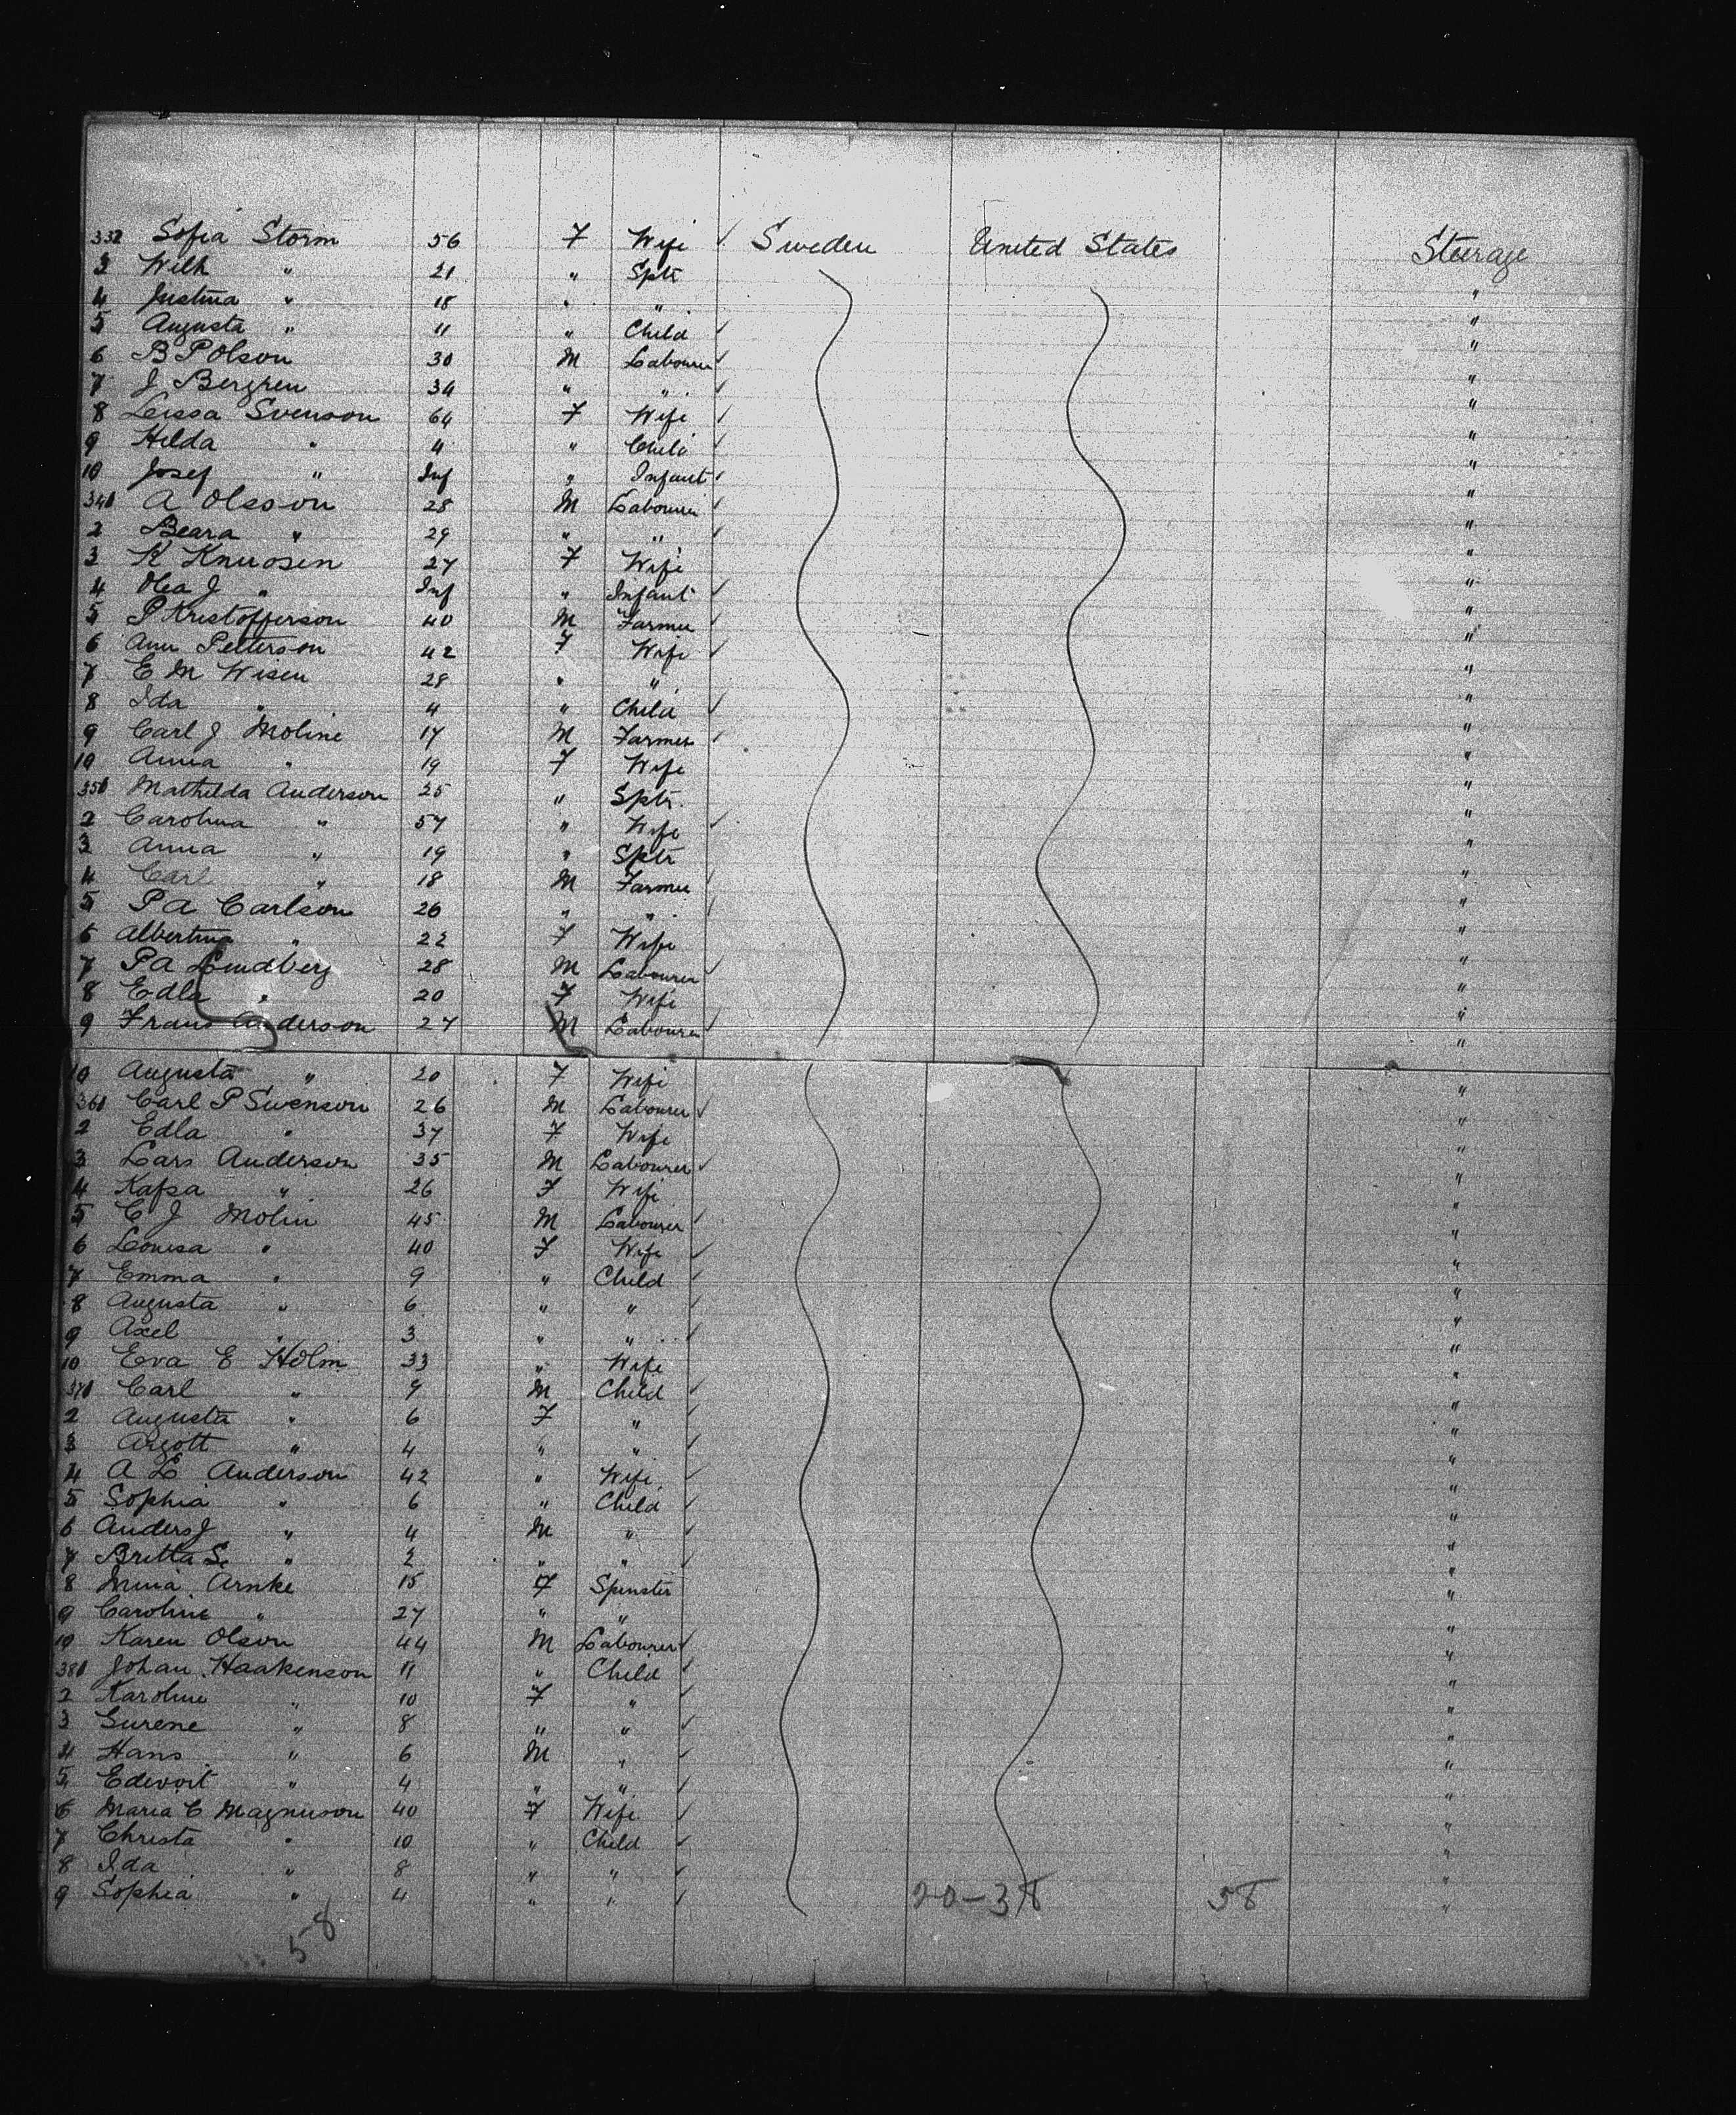 332 Sofia Storm 56 F Wife ✓ Sweden United States Steerage
3 Wilh " 21 " Sptr "
4 Justina " 18 " " "
5 Augusta " 11 " Child ✓ "
6 B P Olson 30 M Labourer ✓ "
7 J Bergren 34 " " ✓ "
8 Leissa Svenson 64 F Wife ✓ "
9 Hilda " 4 " Child ✓ "
10 Josef " Inf " Infant ✓ "
341 A Olsson 28 M Labourer ✓ "
2 Beara " 29 " " ✓ "
3 K Knudsen 27 F Wife "
4 Olea J " Inf " Infant ✓ "
5 P Kristofferson 40 M Farmer ✓ "
6 Ann Petterson 42 F Wife ✓ "
7 E M Wisen 28 " " "
8 Ida " 4 " Child ✓ "
9 Carl J Moline 17 M Farmer ✓ "
10 Anna " 19 F Wife "
351 Mathilda Anderson 25 " Sptr. "
2 Carolina " 57 " Wife ✓ "
3 Anna " 19 " Sptr "
4 Carl " 18 M Farmer ✓ "
5 P A Carlson 26 " " ✓ "
6 Albertina " 22 F Wife "
7 P A Lindberg 28 M Labourer ✓ "
8 Edla " 20 F Wife "
9 Frans Anderson 27 M Labourer ✓ "
10 Augusta " 20 F Wife "
361 Carl P Swenson 26 M Labourer ✓ "
2 Edla " 37 F Wife "
3 Lars Anderson 35 M Labourer ✓ "
4 Kajsa " 26 F Wife "
5 C J Molin 45 M Labourer ✓ "
6 Louisa " 40 F Wife ✓ "
7 Emma " 9 " Child ✓ "
8 Augusta " 6 " " ✓ "
9 Axel " 3 " " ✓ "
10 Eva E Holm 33 " Wife "
371 Carl " 9 M Child ✓ "
2 Augusta " 6 F " ✓ "
3 Argott " 4 " " ✓ "
4 A L Anderson 42 " Wife ✓ "
5 Sophia " 6 " Child ✓ "
6 Anders J " 4 M " ✓ "
7 Britta S. " 2 " " ✓ "
8 Mina Arnke 15 F Spinster "
9 Caroline " 27 " " "
10 Karen Olson 44 M Labourer ✓ "
381 Johan Haakenson 11 " Child ✓ "
2 Karoline " 10 F " ✓ "
3 Gurene " 8 " " ✓ "
4 Hans " 6 M " ✓ "
5 Edevart " 4 " " ✓ "
6 Maria C Magnuson 40 F Wife ✓ "
7 Christa " 10 " Child ✓ "
8 Ida " 8 " " ✓ "
9 Sophia " 4 " " ✓ 20-38 58 "
58